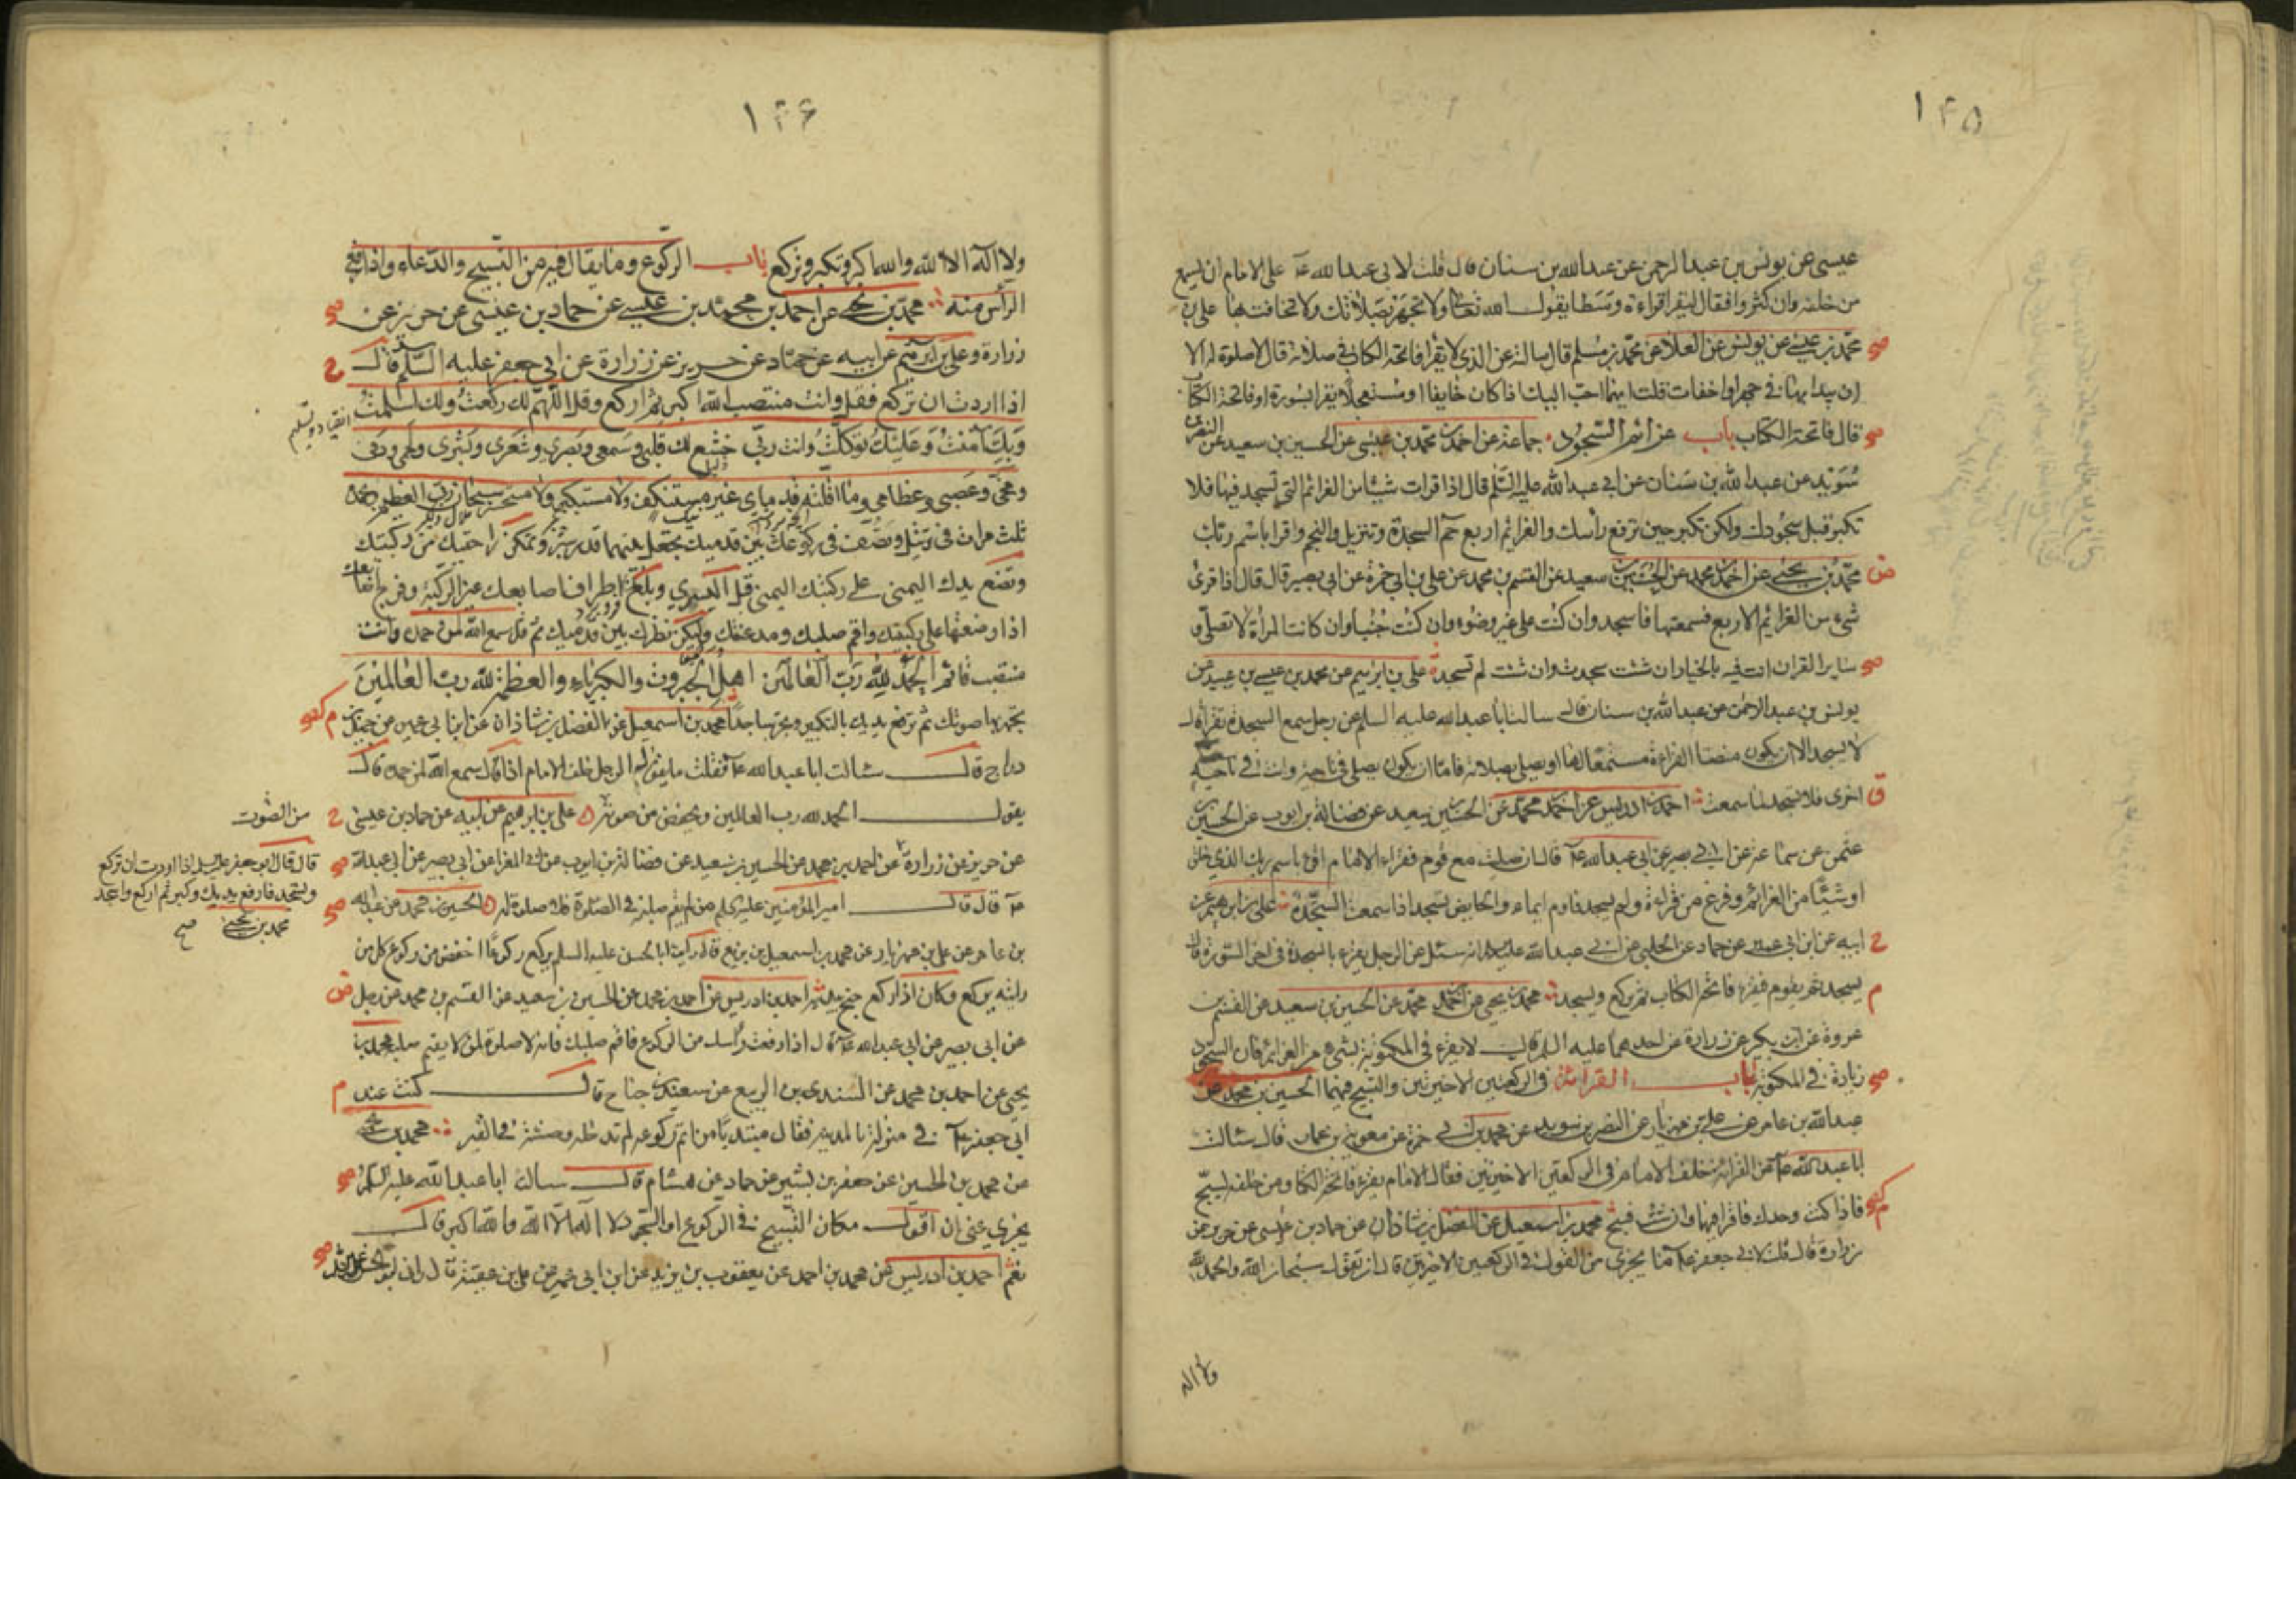 ١٤٥
عيسى عن يونس بن عبد الرحمن عن عبد الله بن سنان قال قلت لابى عبد الله عـ على الامام ان يسمع
من خلفه وان كثروا فقال ليقرا قراءة وسطا يقول الله تعالى ولا تجهر بصلاتك ولا تخافت بها على بن
محمد بن عيسى عن يونس عن العلا عن محمد بن مسلم قال سالته عن الذى لا يقرا فاتحة الكتاب فى صلاته قال لا صلوة له الا
ان يبدا بها فى جهر او اخفات قلت ايهما احب اليك اذا كان خايفا او مستعجلا يقرا بسورة او فاتحة الكتاب
قال فاتحة الكتاب باب عزائم السجود جماعة عن احمد بن محمد بن عيسى عن الحسين بن سعيد عن النضر بن
سويد عن عبد الله بن سنان عن ابى عبد الله عليه السلم قال اذا قرات شيئا من الغرائم التى تسجد فيها فلا
تكبر قبل سجودك ولكن تكبر حين ترفع رأسك والغرائم اربع حم السجدة وتنزيل والنجم واقرا باسم ربك
محمد بن يحيى عن احمد بن محمد عن الحسين بن سعيد عن القسم بن محمد عن على بن ابى حمزة عن ابى بصير قال قال اذا قرئ
شىء من الغرائم الاربع فسمعتها فاسجد وان كنت على غير وضوء وان كنت جنبا وان كانت المراة لا تصلى و
ساير القران انت فيه بالخيار ان شئت سجدت وان شئت لم تسجد على بن ابرهيم عن محمد بن عيسى بن عبيد عن
يونس بن عبد الرحمن عن عبد الله بن سنان قال سالت ابا عبد الله عليه السلم عن رجل سمع السجدة تقرا قال
لا يسجد الا ان يكون منصتا لقراءة مستمعا لها او يصلى بصلاته فاما ان يكون يصلى فى ناحية وانت فى ناحية
اخرى فلا تسجد لما سمعت احمد بن ادريس عن احمد بن محمد عن الحسين بن سعيد عن فضالة بن ايوب عن الحسين بن
عثمن عن سماعة عن ابى بصير عن ابى عبد الله عـ قال ان صليت مع قوم فقرا الامام اقرا باسم ربك الذى خلق
او شيئا من الغرائم وفرغ من قراءته ولم يسجد فاوم ايماء والحايض تسجد اذا سمعت السجدة على بن ابرهيم عن
ابيه عن ابن ابى عمير عن حماد عن الحلبى عن ابى عبد الله عليه السلم انه سئل عن الرجل يقرء بالسجدة فى اخر السورة قال
يسجد ثم يقوم فيقرء فاتحة الكتاب ثم يركع ويسجد محمد بن يحيى عن احمد بن محمد عن الحسين بن سعيد عن القسم بن
عروة عن ابن بكير عن زرارة عن احدهما عليه السلم قال لا يقرء فى المكتوبة بشىء من الغرائم فان السجود
زيادة فى المكتوبة باب القراءة فى الركعتين الاخيرتين والتسبيح فيهما الحسين بن محمد عن
عبد الله بن عامر عن على بن مهزيار عن النضر بن سويد عن محمد بن ابى حمزة عن معوية بن عمار قال سالت
ابا عبد الله عـ عن القراءة خلف الامام فى الركعتين الاخيرتين فقال الامام يقرء فاتحة الكتاب ومن خلفه يسبح
فاذا كنت وحدك فاقرا فيهما وان شئت فسبح محمد بن اسمعيل عن الفضل بن شاذان عن حماد بن عيسى عن حريز عن
زرارة قال قلت لابى جعفر عـ ما يجزى من القول فى الركعتين الاخيرتين قال ان تقول سبحان الله والحمد لله
ولا اله
١٤٦
ولا اله الا الله والله اكبر وتكبر وتركع باب الركوع وما يقال فيه من التسبيح والدعاء واذا رفع
الرأس منه محمد بن يحيى عن احمد بن محمد بن عيسى عن حماد بن عيسى عن حريز عن
زرارة وعلى بن ابرهيم عن ابيه عن حماد عن حريز عن زرارة عن ابى جعفر عليه السلم قال
اذا اردت ان تركع فقل وانت منتصب الله اكبر ثم اركع وقل اللهم لك ركعت ولك اسلمت
وبك آمنت وعليك توكلت وانت ربى خشع لك قلبى وسمعى وبصرى وشعرى وبشرى ولحمى ودمى
ومخى وعصبى وعظامى وما اقلته قدماى غير مستنكف ولا مستكبر ولا مستحسر سبحان ربى العظيم وبحمده
ثلث مرات فى ترتيل وتصف فى ركوعك بين قدميك تجعل بينهما قدر شبر وتمكن راحتيك من ركبتيك
وتضع يدك اليمنى على ركبتك اليمنى قبل اليسرى وبلغ باطراف اصابعك عين الركبة وفرج اصابعك
اذا وضعتها على ركبتيك واقم صلبك ومد عنقك وليكن نظرك بين قدميك ثم قل سمع الله لمن حمده وانت
منتصب قائم الحمد لله رب العالمين اهل الجبروت والكبرياء والعظمة لله رب العالمين
تجهر بها صوتك ثم ترفع يديك بالتكبير وتخر ساجدا محمد بن اسمعيل عن الفضل بن شاذان عن ابن ابى عمير عن جميل بن
دراج قال سالت ابا عبد الله عـ فقلت ما يقول الرجل خلف الامام اذا قال سمع الله لمن حمده قال
يقول الحمد لله رب العالمين ويخفض من صوته على بن ابرهيم عن ابيه عن حماد بن عيسى
عن حريز عن زرارة عن احمد بن محمد عن الحسين بن سعيد عن فضالة بن ايوب عن ابى المغرا عن ابى بصير عن ابى عبد الله
عـ قال قال امير المؤمنين عليه السلم من لم يقم صلبه فى الصلوة فلا صلوة له الحسين بن محمد عن عبد الله
بن عامر عن على بن مهزيار عن محمد بن اسمعيل بن بزيع قال رايت ابا الحسن عليه السلم يركع ركوعا اخفض من ركوع كل من
رايته يركع وكان اذا ركع جنح بيديه احمد بن ادريس عن احمد بن محمد عن الحسين بن سعيد عن القسم بن محمد عن رجل
عن ابى بصير عن ابى عبد الله عـ قال اذا رفعت راسك من الركوع فاقم صلبك فانه لا صلوة لمن لا يقيم صلبه محمد بن
يحيى عن احمد بن محمد عن السندى بن الربيع عن سعيد بن جناح قال كنت عند
ابى جعفر عـ فى منزله بالمدينة فقال مبتدئا من اتم ركوعه لم تدخله وحشة فى القبر محمد بن يحيى
عن محمد بن الحسين عن جعفر بن بشير عن حماد عن هشام قال سالت ابا عبد الله عليه السلم
يجزى عنى ان اقول مكان التسبيح فى الركوع او السجود لا اله الا الله والله اكبر قال
نعم احمد بن ادريس عن محمد بن احمد عن يعقوب بن يزيد عن ابن ابى عمير عن على بن عقبة قال
انقياد وتسليم
من الصوت
قال قال ابو جعفر عليه السلم اذا اردت ان تركع
وتسجد فارفع يديك وكبر ثم اركع واسجد
محمد بن يحيى صح